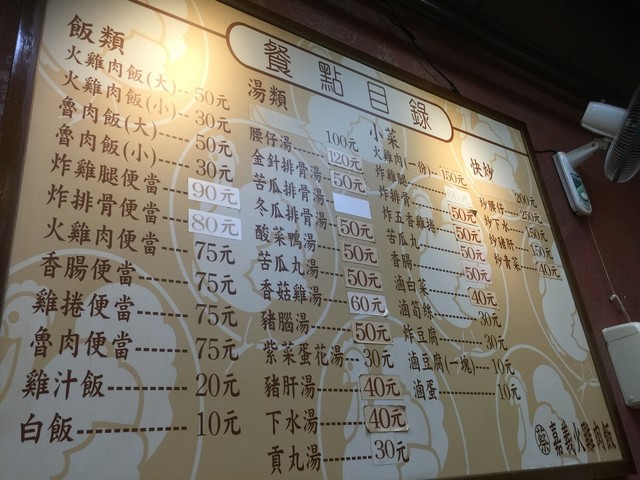 餐點目錄
飯類
火雞肉飯(大)--50元
火雞肉飯(小)--30元
魯肉飯(大)----50元
魯肉飯(小)----30元
炸雞腿便當 90元
炸排骨便當 80元
火雞肉便當----75元
香腸便當------75元
雞捲便當------75元
魯肉便當------75元
雞汁飯--------20元
白飯----------10元
湯類
100元
腰仔湯 120元
金針排骨湯 50元
苦瓜排骨湯
冬瓜排骨湯 50元
酸菜鴨湯 50元
苦瓜丸湯 50元
香菇雞湯 60元
豬腦湯 50元
紫菜蛋花湯--30元
豬肝湯 40元
下水湯 40元
貢丸湯 30元
小菜
火雞肉(一份)--150元
炸雞腿
炸排骨 50元
炸五香雞捲 50元
苦瓜丸 50元
香腸 50元
滷白菜 40元
滷筍絲 30元
炸豆腐 30元
滷豆腐(一塊)--10元
滷蛋 10元
快炒
200元
炒腰仔 250元
炒下水 150元
炒豬肝 150元
炒青菜 40元
蔡 嘉義火雞肉飯